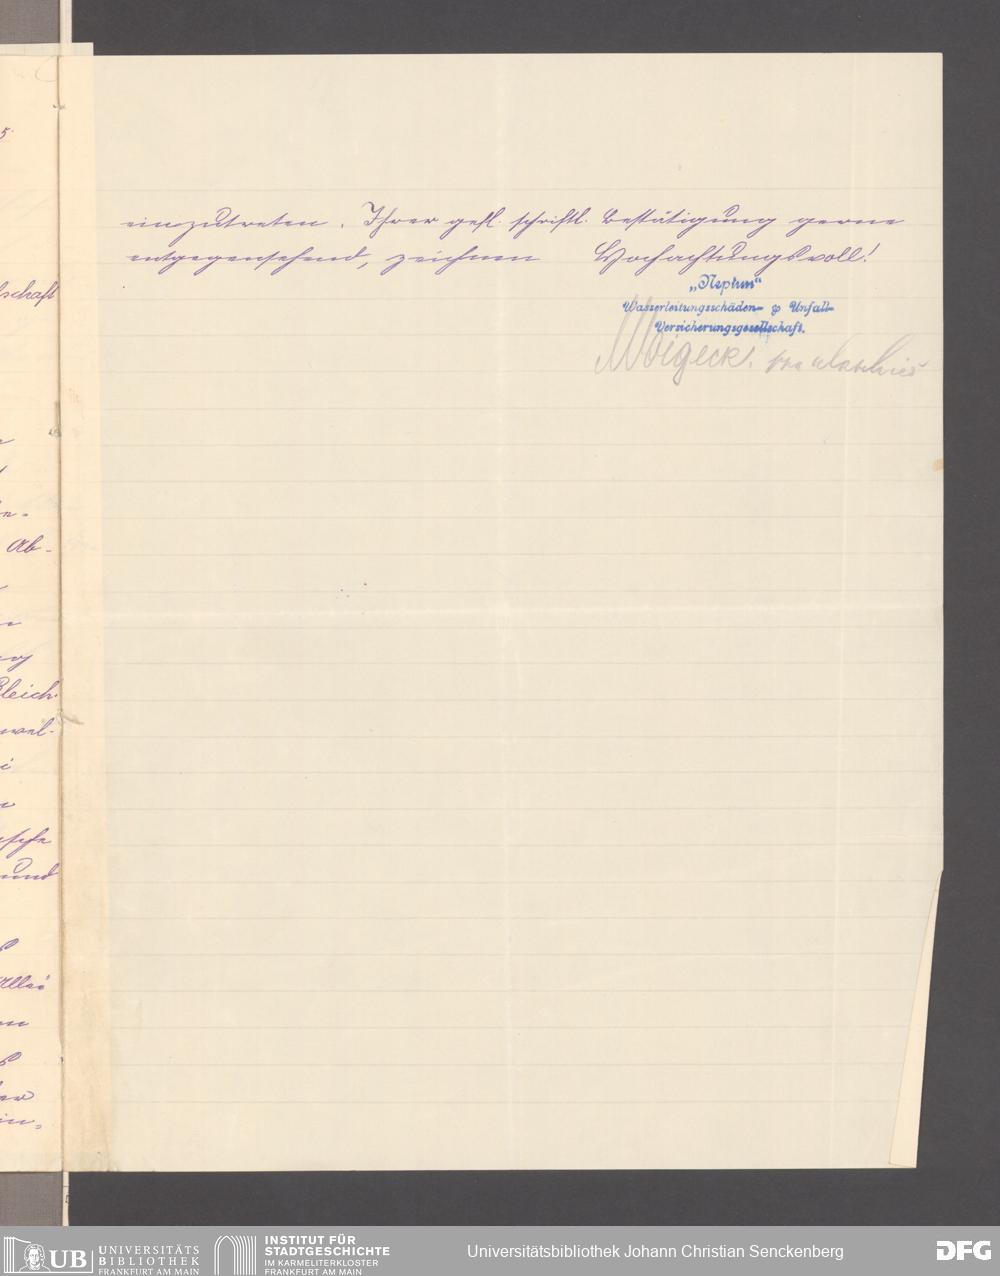 5
lschaft
n-
Ab-
Gleich-
wel-
und
Allei
einzutreten. Ihrer gefl. schriftl. Bestätigung gerne
entgegensehend, zeichnen Hochachtungsvoll!
„Neptun“
Wasserleitungsschäden- & Unfall-
Versicherungsgesellschaft.
UB UNIVERSITÄTS
BIBLIOTHEK
FRANKFURT AM MAIN
INSTITUT FÜR
STADTGESCHICHTE
IM KARMELITERKLOSTER
FRANKFURT AM MAIN
Universitätsbibliothek Johann Christian Senckenberg
DFG